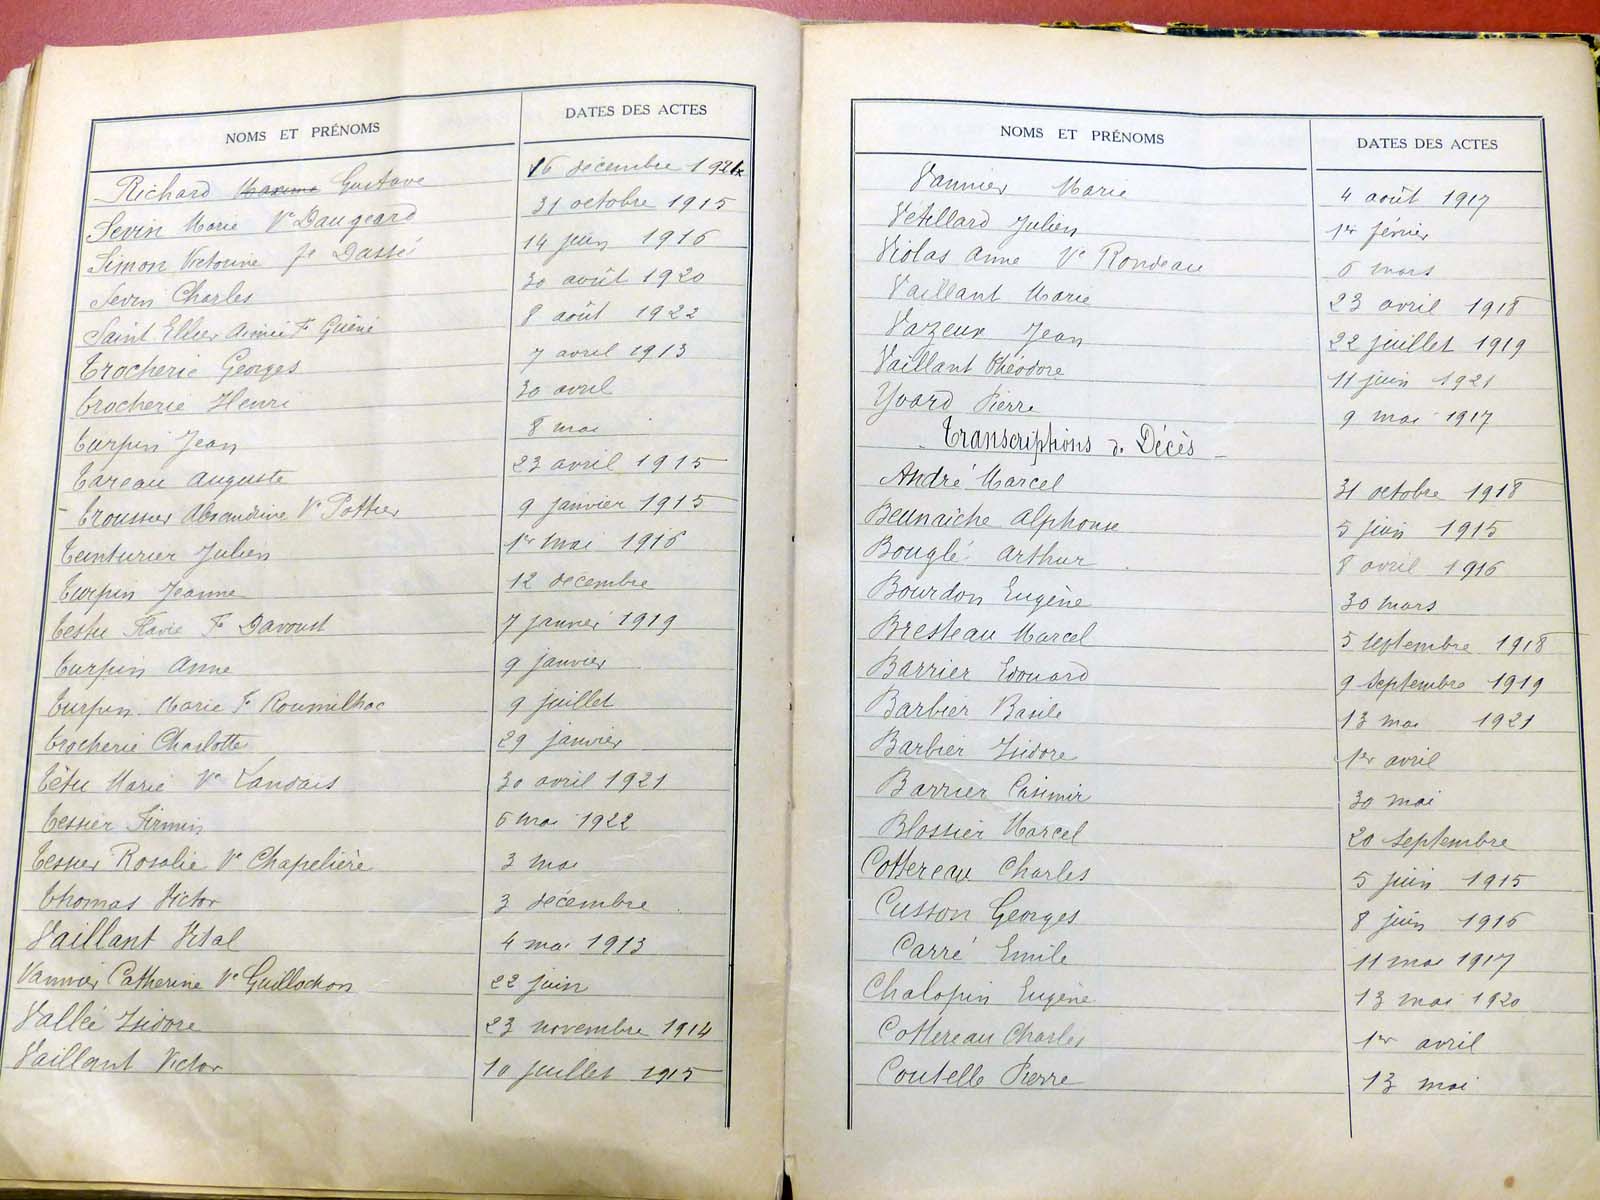 NOMS ET PRÉNOMS DATES DES ACTES
Richard Maxime Gustave 16 décembre 192
Sevin Marie Ve Daugeard 31 octobre 1915
Simon Victorine fe Dassé 14 juin 1916
Sevin Charles 30 août 1920
Saint Ellier Aimée F Guéné 8 août 1922
Trocherie Georges 7 avril 1913
Trocherie Henri 30 avril
Turpin Jean 8 mai
Tareau Auguste 23 avril 1915
Troussier Alexandrine Ve Pottier 9 janvier 1915
Teinturier Julien 1er mai 1916
Turpin Jeanne 12 décembre
Testu Flavie F Davoust 7 janvier 1919
Turpin Anne 9 janvier
Turpin Marie F Roumilhac 9 juillet
Trocherie Charlotte 29 janvier
Têtu Marie Ve Landais 30 avril 1921
Tessier Firmin 6 mai 1922
Tessier Rosalie Ve Chapelière 3 mai
Thomas Victor 3 décembre
Vaillant Vital 4 mai 1913
Vannier Catherine Ve Guillochon 22 juin
Vallée Isidore 23 novembre 1914
Vaillant Victor 10 juillet 1915
NOMS ET PRÉNOMS DATES DES ACTES
Vannier Marie 4 août 1917
Vétillard Julien 1er février
Violas Anne Ve Rondeau 6 mars
Vaillant Marie 23 avril 1918
Vazeux Jean 22 juillet 1919
Vaillant Théodore 11 juin 1921
Yvard Pierre 9 mai 1917
Transcriptions de Décès
André Marcel 31 octobre 1918
Beunaiche Alphonse 5 juin 1915
Bouglé Arthur 8 avril 1916
Bourdon Eugène 30 mars
Bresteau Marcel 5 septembre 1918
Barrier Edouard 9 septembre 1919
Barbier Basile 13 mai 1921
Barbier Isidore 1er avril
Barrier Casimir 30 mai
Blossier Marcel 20 septembre
Cottereau Charles 5 juin 1915
Cusson Georges 8 juin 1916
Carré Emile 11 mai 1917
Chalopin Eugène 13 mai 1920
Cottereau Charles 1er avril
Coutelle Pierre 13 mai